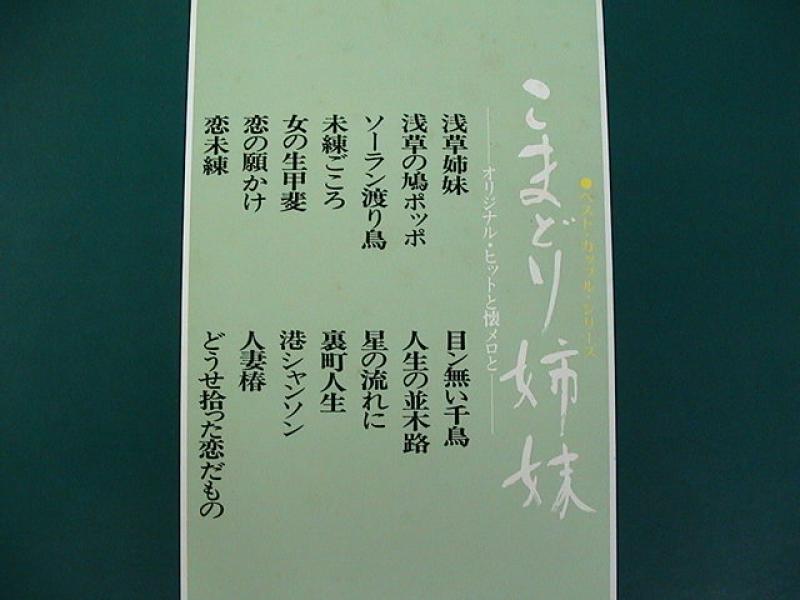 ●ベスト・カップル・シリーズ
こまどり姉妹
オリジナル・ヒットと懐メロと
浅草姉妹
浅草の鳩ポッポ
ソーラン渡り鳥
未練ごころ
女の生甲斐
恋の願かけ
恋未練
目ン無い千鳥
人生の並木路
星の流れに
裏町人生
港シャンソン
人妻椿
どうせ拾った恋だもの